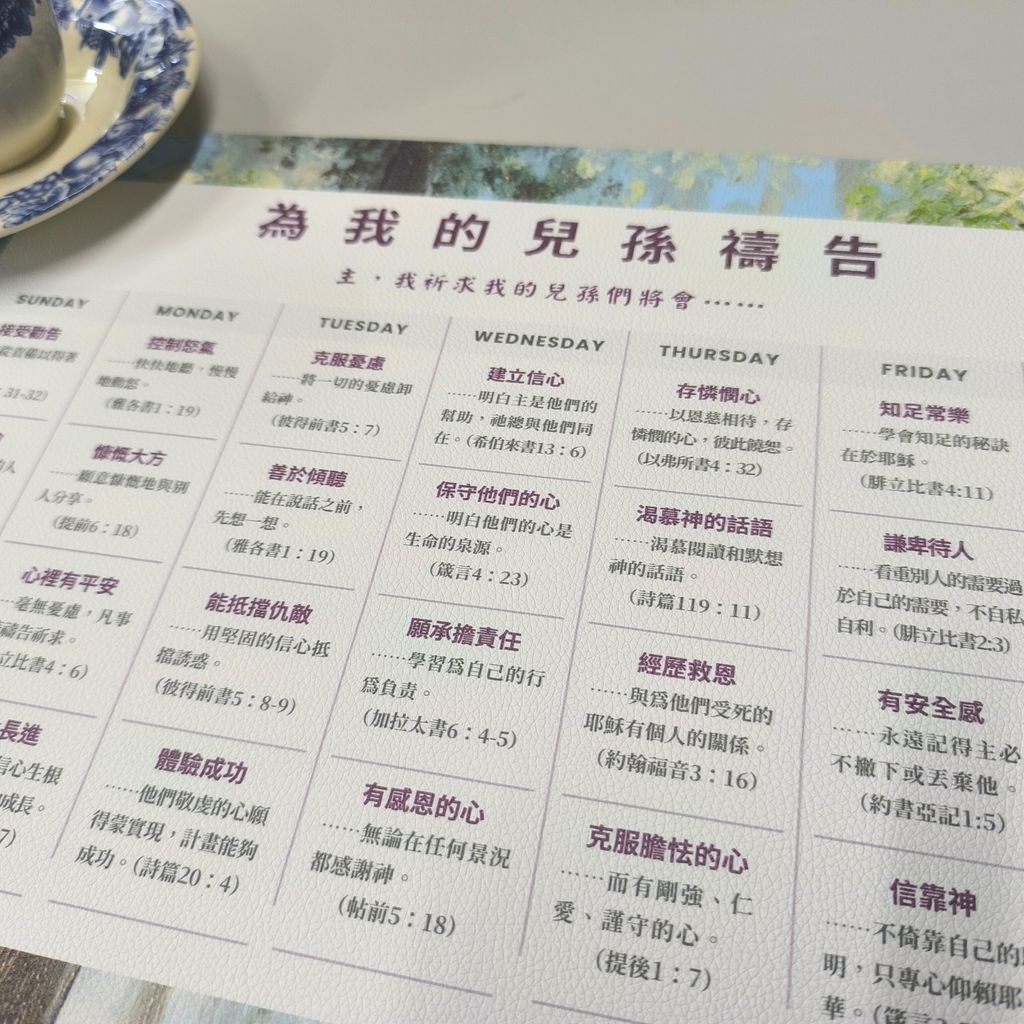 為我的兒孫禱告
主、我祈求我的兒孫們將會……
SUNDAY
接受勸告
31-32)
心裡有平安
毫無憂慮，凡事
禱告祈求。
立比書4：6)
長進
信心生根
成長。
7)
MONDAY
控制怒氣
……快快地聽，慢慢
地動怒。
(雅各書1：19)
慷慨大方
……願意慷慨地與別
人分享。
(提前6：18)
能抵擋仇敵
……用堅固的信心抵
擋誘惑。
(彼得前書5：8-9)
體驗成功
……他們敬虔的心願
得蒙實現，計畫能夠
成功。(詩篇20：4)
TUESDAY
克服憂慮
……將一切的憂慮卸
給神。
(彼得前書5：7)
善於傾聽
……能在說話之前，
先想一想。
(雅各書1：19)
願承擔責任
……學習爲自己的行
爲負责。
(加拉太書6：4-5)
有感恩的心
……無論在任何景況
都感謝神。
(帖前5：18)
WEDNESDAY
建立信心
……明白主是他們的
幫助，祂總與他們同
在。(希伯來書13：6)
保守他們的心
……明白他們的心是
生命的泉源。
(箴言4：23)
經歷救恩
……與爲他們受死的
耶穌有個人的關係。
(約翰福音3：16)
克服膽怯的心
……而有剛強、仁
愛、謹守的心。
(提後1：7)
THURSDAY
存憐憫心
……以恩慈相待，存
憐憫的心，彼此饒恕。
(以弗所書4：32)
渴慕神的話語
……渴慕閱讀和默想
神的話語。
(詩篇119：11)
FRIDAY
知足常樂
……學會知足的秘訣
在於耶穌。
(腓立比書4:11)
謙卑待人
……看重別人的需要過
於自己的需要，不自私
自利。(腓立比書2:3)
有安全感
……永遠記得主必
不撇下或丟棄他。
(約書亞記1:5)
信靠神
……不倚靠自己的
明，只專心仰賴耶
華。(箴言